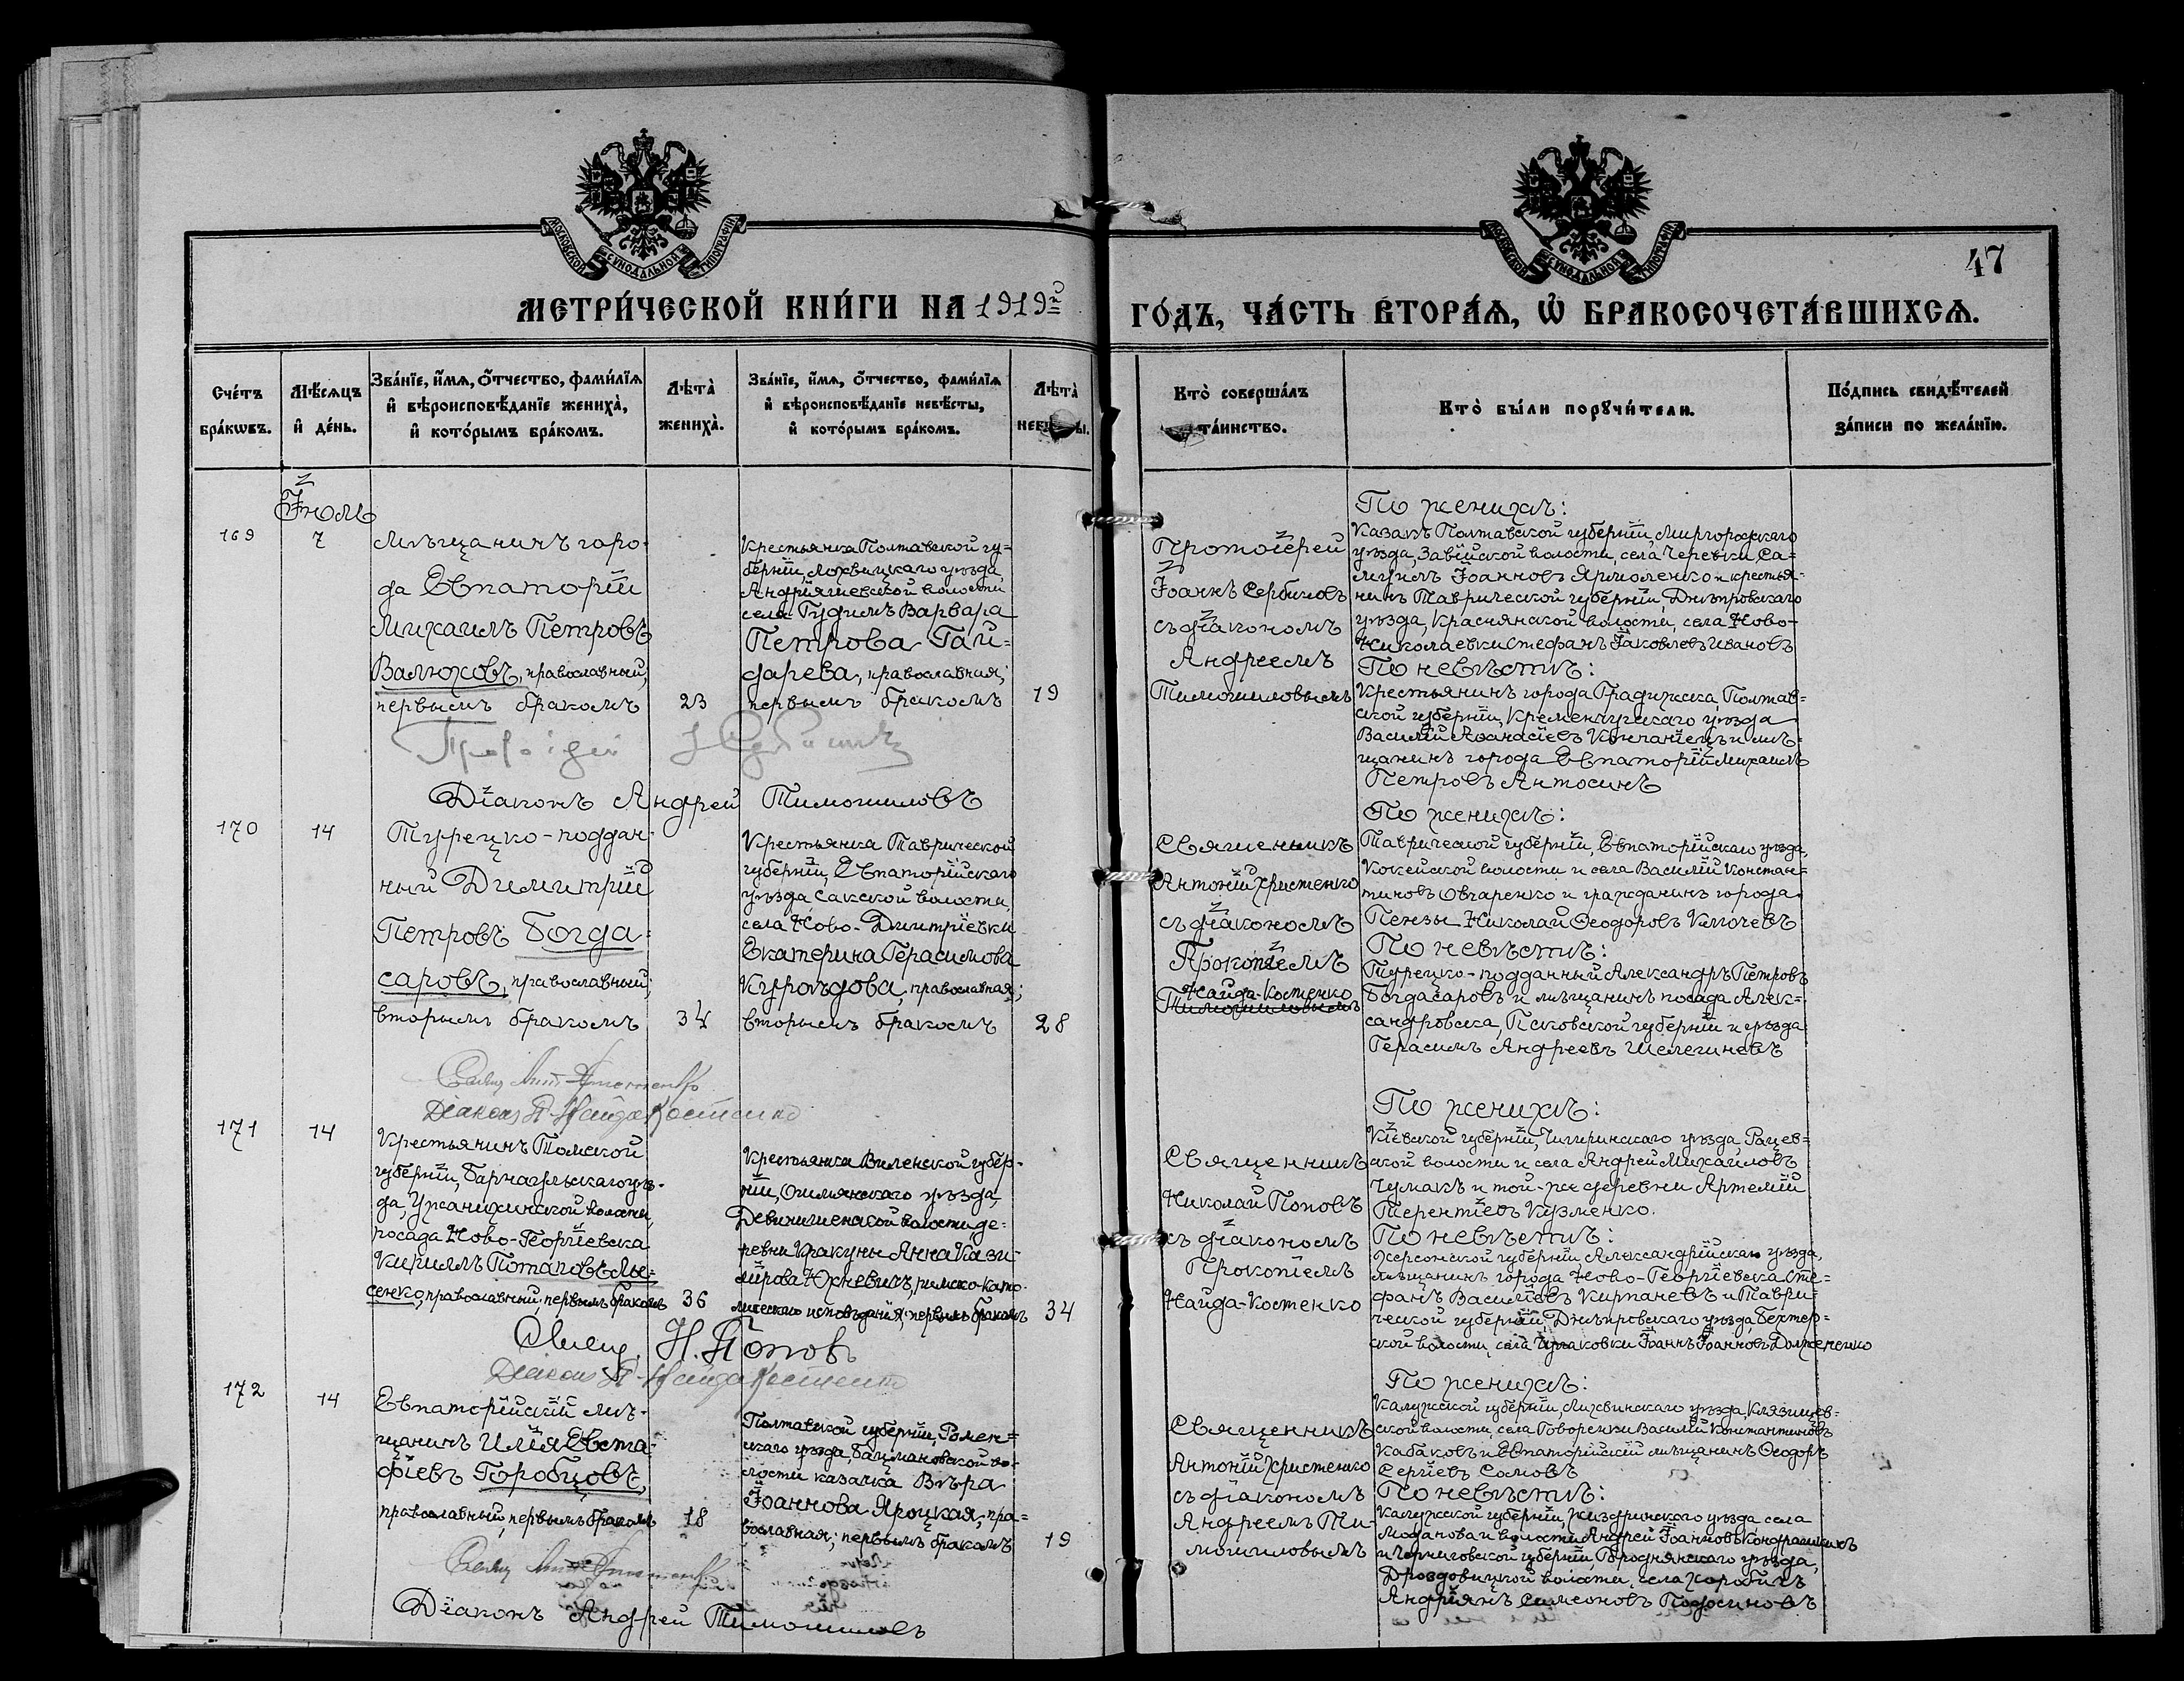 МОСКОВСКОЙ СУНОДАЛЬНОЙ ТИПОГРАФІИ
МОСКОВСКОЙ СУНОДАЛЬНОЙ ТИПОГРАФІИ
47
МЕТРИ́ЧЕСКОЙ КНИ́ГИ НА 1919й
ГО́ДЪ, ЧА́СТЬ ВТОРА́Ѧ, Ѽ БРАКОСОЧЕТА́ВШИХСѦ.
Сче́тъ
бра́кѡвъ.
Мѣ́сѧцъ
и҆ де́нь.
Зва́нїе, и҆́мѧ, ѻ҆́тчество, фами́лїѧ
и҆ вѣроисповѣ́данїе жениха̀,
и҆ кото́рымъ бра́комъ.
Лѣта̀
жениха̀.
Зва́нїе, и҆́мѧ, ѻ҆́тчество, фами́лїѧ
и҆ вѣроисповѣ́данїе невѣ́сты,
и҆ кото́рымъ бра́комъ.
Лѣта̀
Кто̀ соверша́лъ
та́инство.
Кто̀ бы́ли порꙋчи́тели.
По́дпись свидѣ́телей
за́писи по жела́нїю.
Іюль
169
7
Мѣщанинъ горо-
да Евпаторіи
Михаилъ Петровъ
Валюховъ, православный,
первымъ бракомъ
23
Крестьянка Полтавской гу-
берніи, Лохвицкаго уѣзда,
Андріяшевской волости
села Гудимъ Варвара
Петрова Гай-
дарева, православная;
первымъ бракомъ
19
Протоіерей
Іоаннъ Сербиновъ
съ діакономъ
Андреемъ
Тимошиловымъ
По женихѣ:
Казакъ Полтавской губерніи, Миргородскаго
уѣзда, Завійской волости, села Черевки Са-
муилъ Іоанновъ Ярмоленко и крестья-
нинъ Таврической губерніи, Днѣпровскаго
уѣзда, Краснянской волости, села Ново-
Николаевки Стефанъ Іаковлевъ Ивановъ
По невѣстѣ:
Крестьянинъ города Градижска, Полтав-
ской губерніи, Кременчугскаго уѣзда
Василій Аѳанасіевъ Кончанiецъ и мѣ-
щанинъ города Евпаторіи Михаилъ
Петровъ Антосинъ
Протоіерей І Сербиновъ
Діаконъ Андрей Тимошиловъ
170
14
Турецко-поддан-
ный Димитрій
Петровъ Богда-
саровъ, православный;
вторымъ бракомъ
34
Крестьянка Таврической
губерніи, Евпаторійскаго
уѣзда, Сакской волости,
села Ново-Дмитріевки
Екатерина Герасимова
Куроѣдова, православная;
вторымъ бракомъ
28
Священникъ
Антоній Христенко
съ діакономъ
Прокопіемъ
Найда-Костенко
Тимошиловымъ
По женихѣ:
Таврической губерніи, Евпаторійскаго уѣзда,
Кокейской волости и села Василій Констан-
тиновъ Овчаренко и гражданинъ города
Пензы Николай Ѳеодоровъ Ключевъ
По невѣстѣ:
Турецко-подданный Александръ Петровъ
Богдасаровъ и мѣщанинъ посада Алек-
сандровска, Псковской губерніи и уѣзда
Герасимъ Андреевъ Шелегиневъ
Свящ Ант Христенко
Діаконъ П. Найда Костенко
171
14
Крестьянинъ Томской
губерніи, Барнаульскаго уѣз-
да, Ужанихинской волости,
посада Ново-Георгіевска
Кириллъ Потаповъ Лы-
сенко, православный; первымъ бракомъ
36
Крестьянка Виленской губер-
ніи, Ошмянскаго уѣзда,
Девенишенской волости де-
ревни Кракуны Анна Кази-
мірова Юхневичъ, римско-като-
лическаго исповѣданія; первымъ бракомъ
34
Священникъ
Николай Поповъ
съ діакономъ
Прокопіемъ
Найда-Костенко
По женихѣ:
Кіевской губерніи, Чигиринскаго уѣзда, Рацев-
ской волости и села Андрей Михаиловъ
Чумакъ и той-же деревни Артемій
Терентіевъ Кузменко.
По невѣстѣ:
Херсонской губерніи, Александрійскаго уѣзда,
мѣщанинъ города Ново-Георгіевска Сте-
фанъ Василіевъ Кирпаневъ и Таври-
ческой губерніи Днѣпровскаго уѣзда, Бехтер-
ской волости, села Чулаковки Іоаннъ Іоанновъ Долженко
Свящ. Н. Поповъ
Діаконъ П. Найда Костенко
172
14
Евпаторійскій мѣ-
щанинъ Илія Евста-
фіевъ Горобцовъ,
православный, первымъ бракомъ
18
Полтавской губерніи, Ромен-
скаго уѣзда, Бацмановской во-
лости казачка Вѣра
Іоаннова Яроцкая, пра-
вославная; первымъ бракомъ
19
Священникъ
Антоній Христенко
съ діакономъ
Андреемъ Ти-
мошиловымъ
По женихѣ:
Калужской губерніи, Лихвинскаго уѣзда, Клязищев-
ской волости, села Говоренки Василій Константиновъ
Кабаковъ и Евпаторійскій мѣщанинъ Ѳеодоръ
Сергіевъ Самовъ
По невѣстѣ:
Калужской губерніи, Жиздринскаго уѣзда села
Моданова и волости Андрей Іоанновъ Кондрашкинъ
и Черниговской губерніи, Городнянскаго уѣзда,
Дроздовицкой волости, села Хоробичъ
Андріянъ Симеоновъ Подосиновъ
Свящ Ант Христенко
Діаконъ Андрей Тимошиловъ